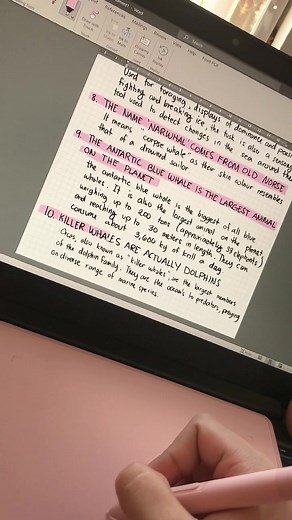 used for foraging, displays of dominance and
fighting and breaking ice, the tusk is also a sensory
tool used to detect changes in the sea around them
8. THE NAME 'NARWHAL' COMES FROM OLD NORSE
It means corpse whale as their skin colour resembles
that of a drowned sailor
9. THE ANTARTIC BLUE WHALE IS THE LARGEST ANIMAL
ON THE PLANET
the antartic blue whale is the biggest of all blue
whales. It is also the largest animal on the planet,
weighing up to 200 tons (approximately 33 elephants)
and reaching up to 30 meters in length. They can
consume about 3,600 kg of krill a day
10. KILLER WHALES ARE ACTUALLY DOLPHINS
Orcas, also known as "killer whales", are the largest members
of the dolphin family. They are the ocean's to predators, preying
on diverse range of marine species.